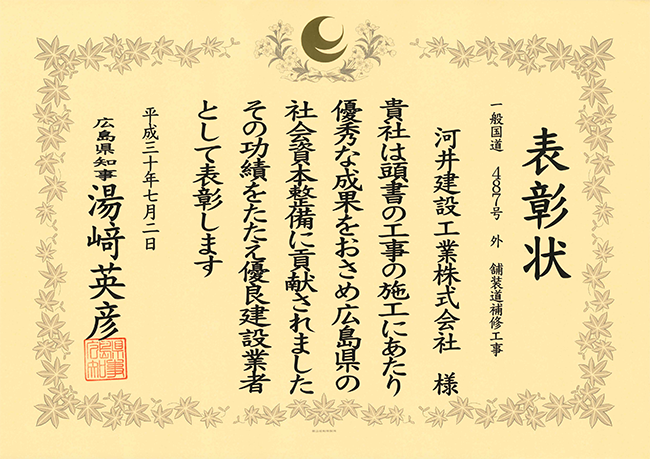 表彰状
一般国道 487号 外 舗装道補修工事
河井建設工業株式会社 様
貴社は頭書の工事の施工にあたり
優秀な成果をおさめ広島県の
社会資本整備に貢献されました
その功績をたたえ優良建設業者
として表彰します
平成三十年七月二日
広島県知事 湯﨑英彦